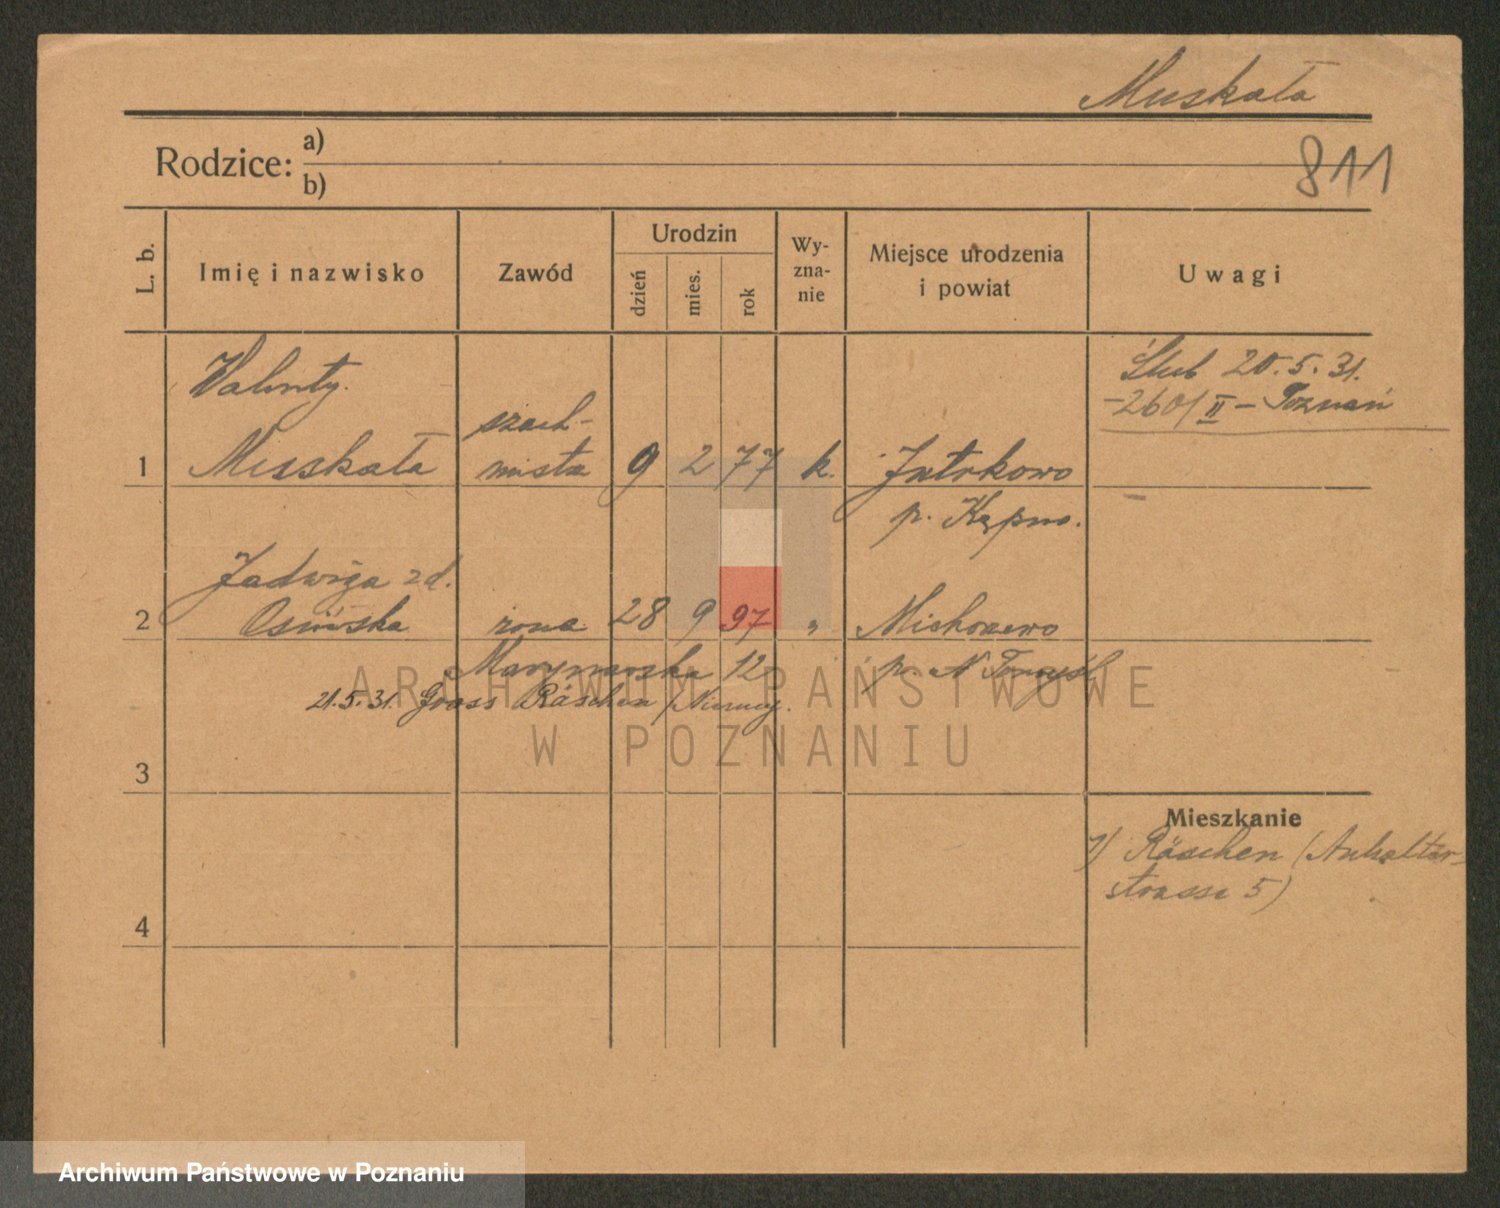 Muskała
Rodzice: a)
b)
811
L. b.
Imię i nazwisko
Zawód
Urodzin
dzień
mies.
rok
Wy-
zna-
nie
Miejsce urodzenia
i powiat
Uwagi
Walenty
Ślub 20.5.31.
-260/II - Poznań
szach-
1 Muskała mistrz 9 2 77 k.
p. Kępno.
Jadwiga z d.
2 Osińska żona 28 9 97 "
Marynarska 12
p. N Tomyśl
21.5.31. Gross Räschen /Niemcy.
ARCHIWUM PAŃSTWOWE
W POZNANIU
3
Mieszkanie
1) Räschen (Anhalter-
strasse 5)
4
Archiwum Państwowe w Poznaniu